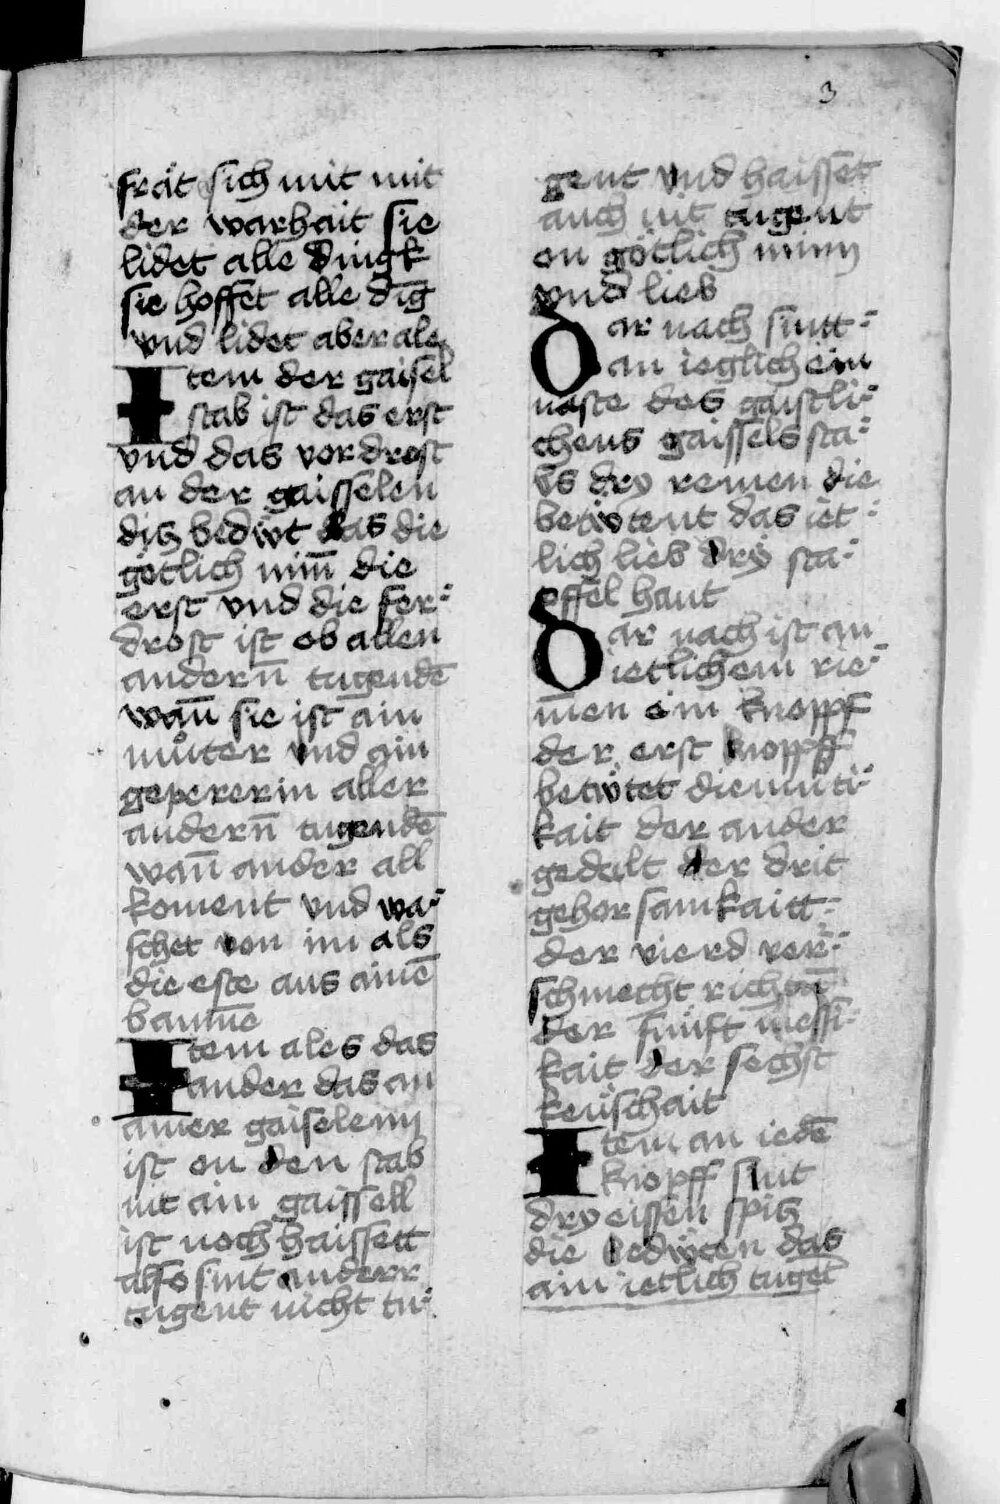 3
frät sich mit mit
der warhait sie
lidet alle dingk
sie hoffet alle dīg
vnd lidet aber ale
Item der gaisel
stab ist das erst
vnd das vordrost
an der gaisselen
diß bedẅt das die
götlich min̄ die
erst vnd die fer⸗
drost ist ob allen
andern̄ tugendē
wan̄ sie ist ain
můter vnd ain
gepererin aller
andern̄ tugendē
wan̄ ander all
koment vnd wa⸗
schet von im als
die este aus ainē
baum̄e
Item ales das
ander das an
ainer gaiselenn
ist on den stab
nit ain gaissell
ist noch haissett
also sint anderr
tugent nicht tu⸗
gent vnd haisset
auch nit tugent
on götlich minn
vnd lieb
Dar nach sintt⸗
an ieglichem
naste des gaistli⸗
chens gaissels sta⸗
bs dry remen die
betẅtent das iet⸗
lich lieb drÿ sta⸗
pffel hant
Dar nach ist an
ietlichem rie⸗
m̄en ein knopff
der erst knopff
betẅtet diemüti⸗
kait der ander
gedult der drit
gehorsamkaitt⸗
der vierd ver⸗
schmecht richtū
der fünft messi⸗
kait der sechst
keüschait
Item an iedē
knopff sint
dry eissen spiß
die bedẅten das
ain ietlich tugēt